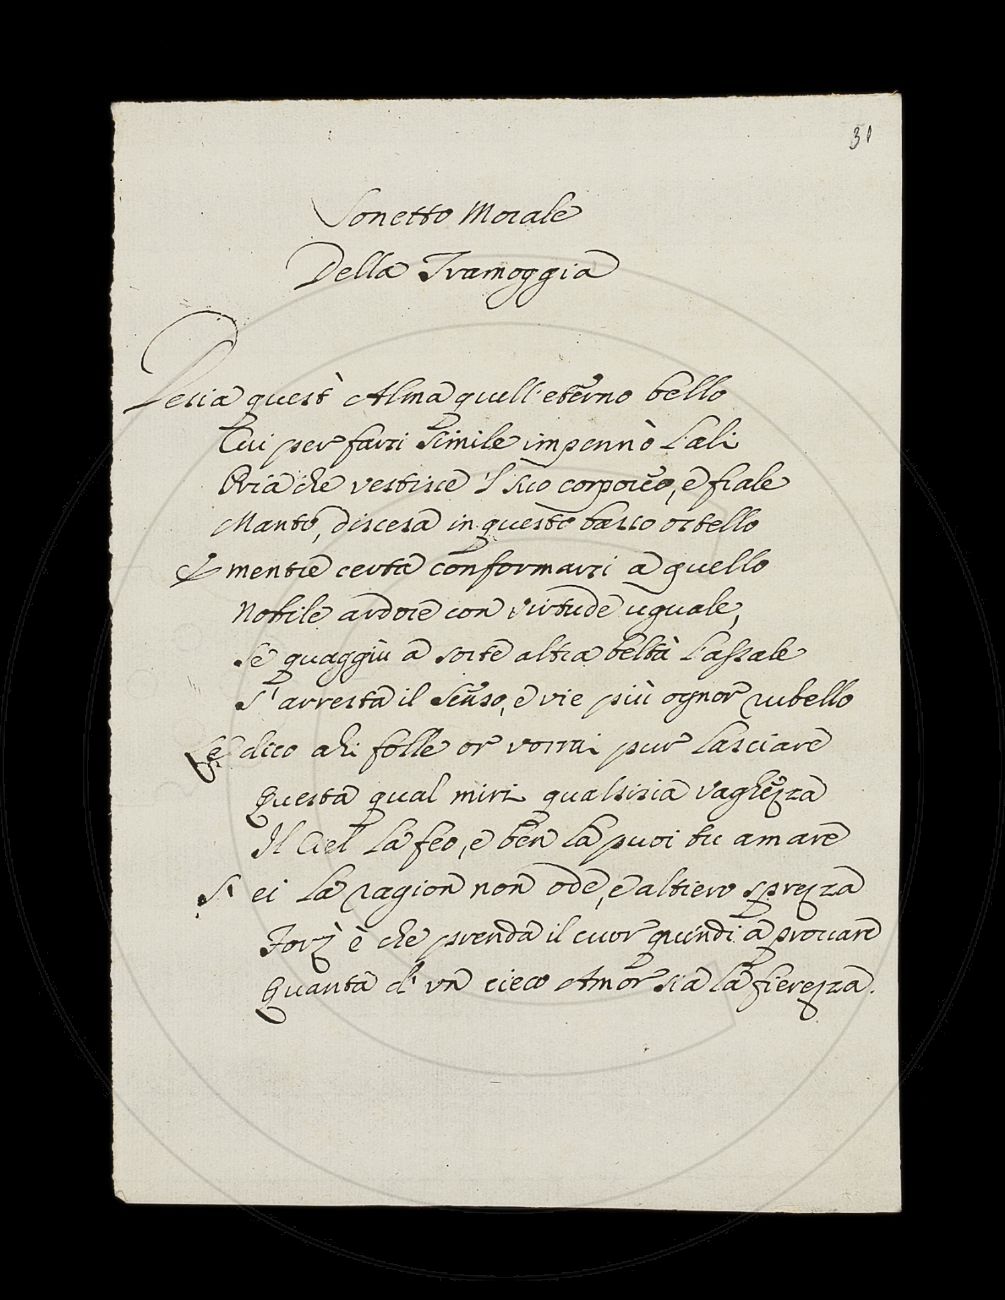 31
Sonetto Morale
Della Tramoggia
Vesia quest' Alma quell' eterno bello
Cui per farsi simile impennò l'ali
Pria che vestisse 'l suo corporeo, e frale
Manto, discesa in questo basso ostello
E mentre certa conformarsi a quello
Nobile ardore con virtude uguale,
Se quaggiù a sorte altra beltà l'assale
S' arresta il senso, e vie più ognor rubello
Le dico ahi folle or vorrai pur lasciare
Questa qual miri qualsisia vaghezza
Il Ciel la feo, e ben la puoi tu amare
S' ei la ragion non ode, e altiero sprezza
Forz' è che prenda il cuor quindi a provare
Quanta d' un cieco Amor sia la fierezza.